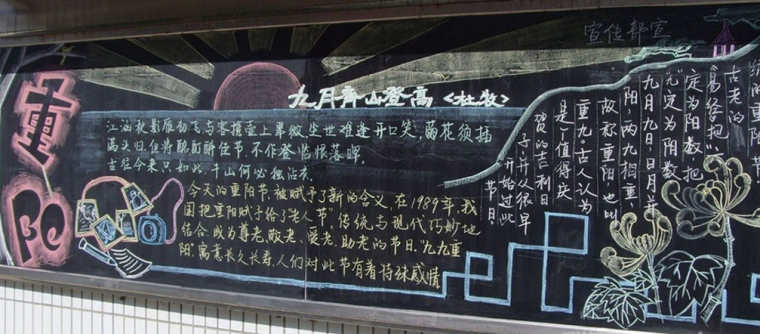 重
阳
九月齐山登高<杜牧>
江涵秋影雁初飞与客携壶上翠微尘世难逢开口笑,菊花须插
满头归。但将酩酊酬佳节,不作登临恨落晖。
古往今来只如此,牛山何必独沾衣。
今天的重阳节,被赋予了新的含义,在1989年,我
国把重阳赋予给了"老人节",传统与现代巧妙地
结合,成为尊老,敬老,爱老,助老的节日.“九九重
阳”寓意长久长寿.人们对此节有着特殊感情
宣传部宣
统的重阳节
古老的
《易经把"
定为阴数,把
"九"定为阳数
九月九日,日月并
阳,两九相重,
故称重阳,也叫
重九.古人认为
是1值得庆
贺的吉利日
子并从很早
开始过此
节日